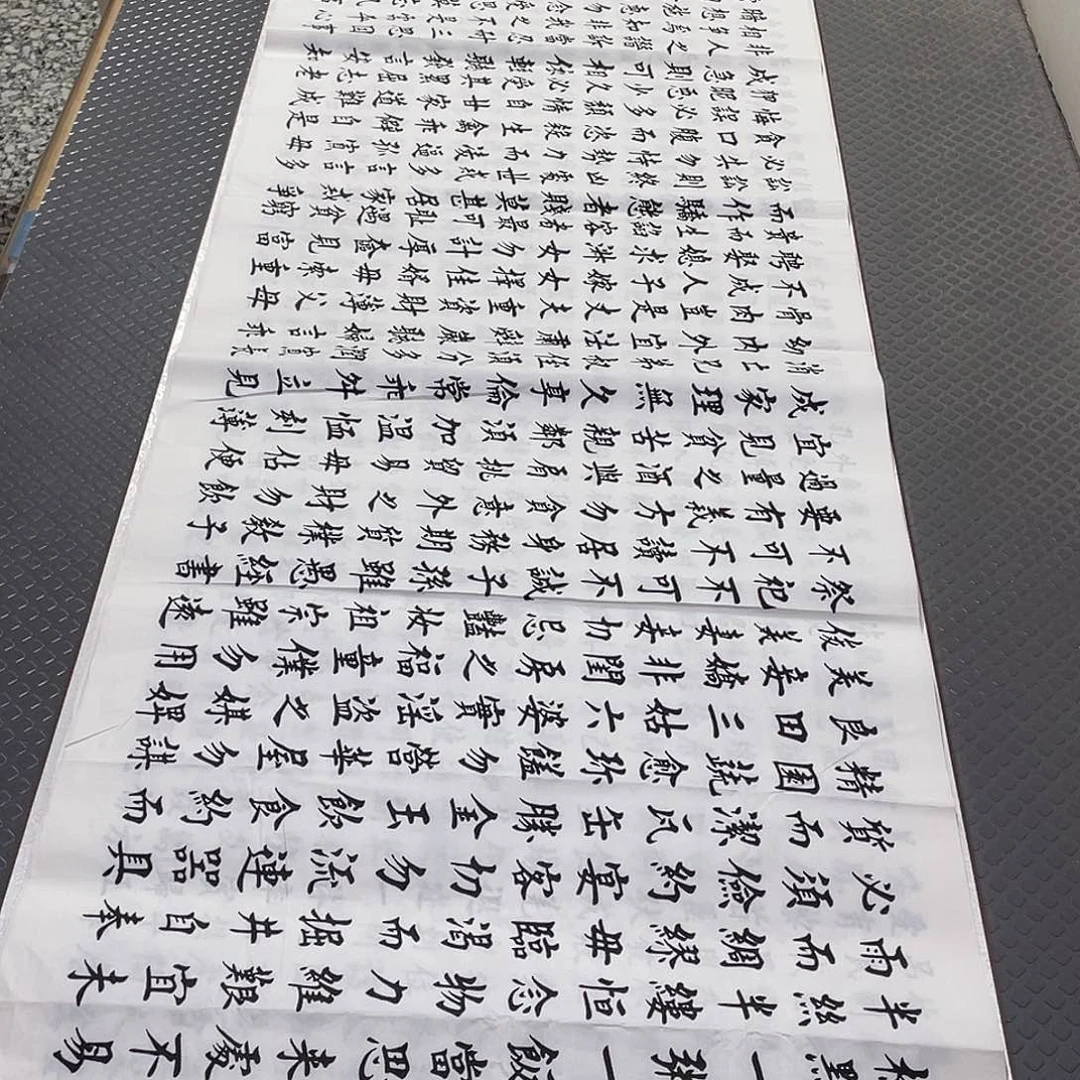 點一粥一飯當思來處不易
半絲半縷恒念物力維艱宜未
雨而綢繆毋臨渴而掘井自奉
必須儉約宴客切勿流連器具
質而潔瓦缶勝金玉飲食約而
精園蔬愈珍饈勿營華屋勿謀
良田三姑六婆實淫盜之媒婢
美妾嬌非閨房之福童僕勿用
俊美妻妾切忌豔妝祖宗雖遠
祭祀不可不誠子孫雖愚經書
不可不讀居身務期質樸教子
要有義方勿貪意外之財勿飲
過量之酒與肩挑貿易毋佔便
宜見貧苦親鄰須加溫恤刻薄
成家理無久享倫常乖舛立見
消亡兄弟叔侄須分多潤寡長
幼內外宜法肅辭嚴聽婦言乖
骨肉豈是丈夫重資財薄父母
不成人子嫁女擇佳婿毋索重
聘娶媳求淑女勿計厚奩見富
貴而生諂容者最可恥遇貧窮
而作驕態者賤莫甚居家戒爭
訟訟則終凶處世戒多言言多
必失勿恃勢力而凌逼孤寡毋
貪口腹而恣殺生禽乖僻自是
悔誤必多頹惰自甘家道難成
狎昵惡少久必受其累屈志老
成急則可相依輕聽發言安知